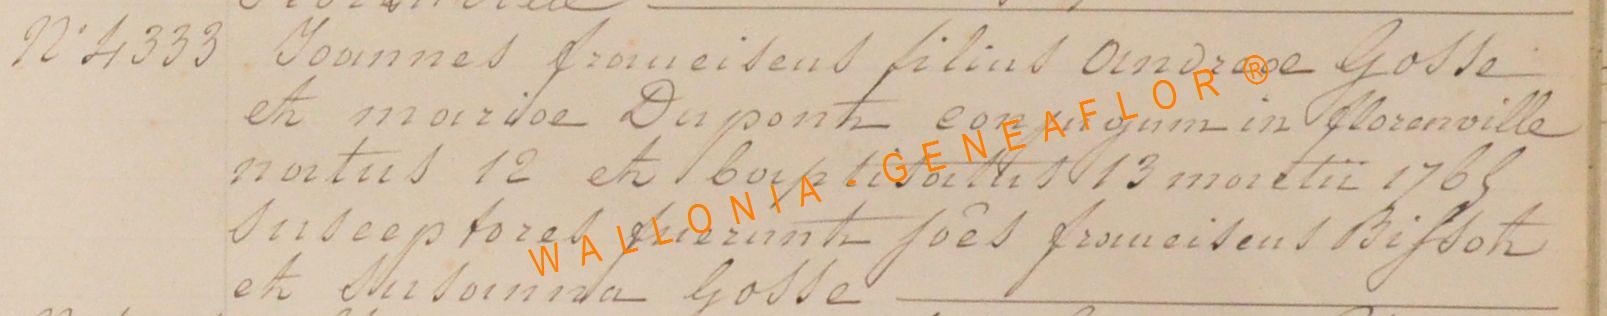 N° 4333 Joannes franciscus filius Andreae Gosse
et mariae Dupont conjugum in florenville
natus 12 et baptisatus 13 martii 1765
susceptores fuerunt joês franciscus Bissot
et Susanna Gosse
WALLONIA - GENEAFLOR ®